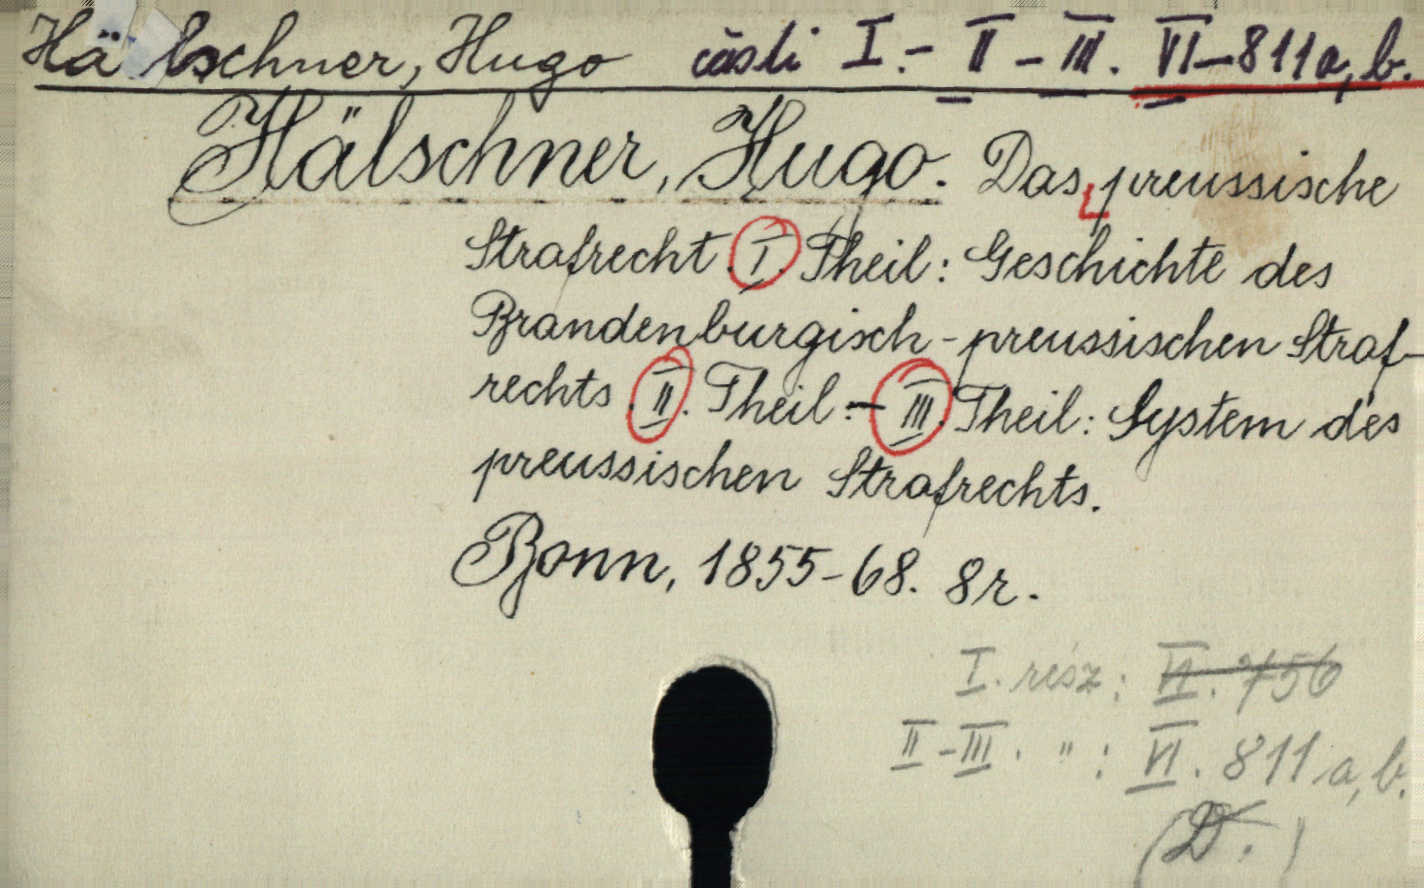 Hälschner, Hugo části I.- II - III. VI-811a, b.
Hälschner, Hugo. Das preussische
Strafrecht. I. Theil: Geschichte des
Brandenburgisch-preussischen Straf-
rechts. II. Theil:- III. Theil: System des
preussischen Strafrechts.
Bonn, 1855-68. 8r.
I. rész: VI. 756
II-III. " : VI. 811 a, b.
(D.)